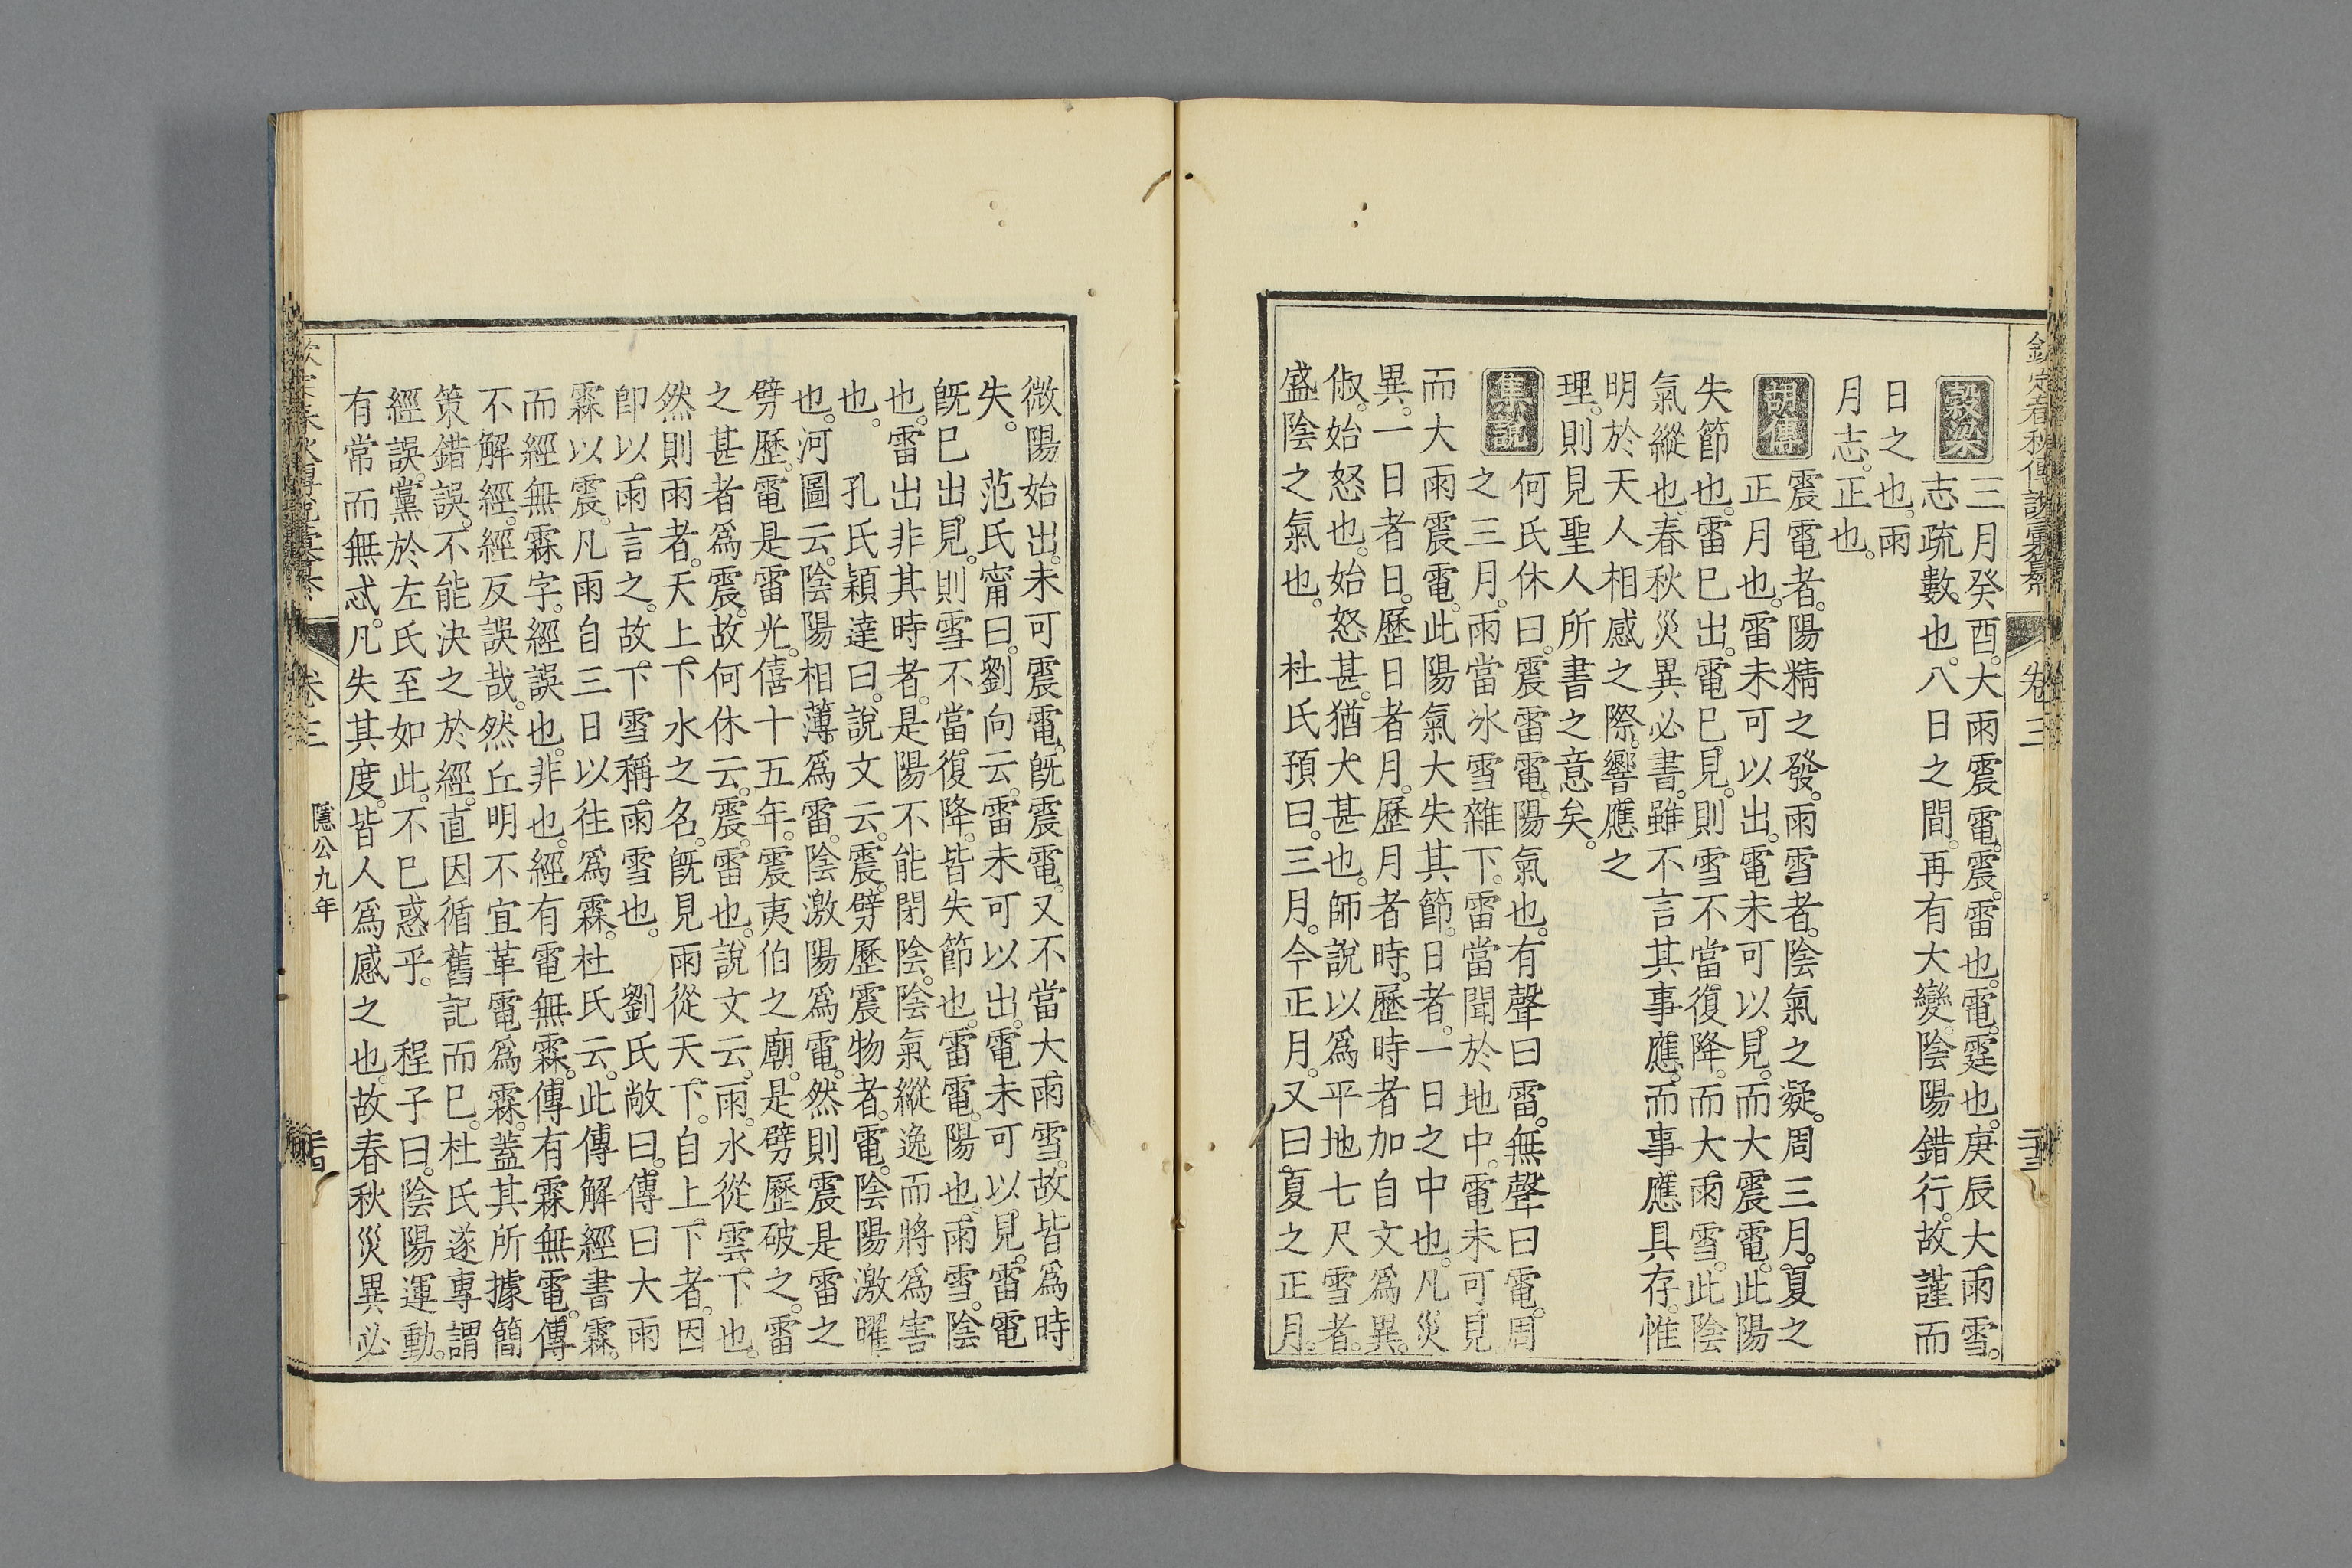 欽定春秋傳說彙纂 卷三
穀梁
三月癸酉。大雨震電。震。雷也。電。霆也。庚辰大雨雪。
志疏數也。八日之間。再有大變。陰陽錯行。故謹而
日之也。雨
月志。正也。
胡傳
震電者。陽精之發。雨雪者。陰氣之凝。周三月。夏之
正月也。雷未可以出。電未可以見。而大震電。此陽
失節也。雷已出。電已見。則雪不當復降。而大雨雪。此陰
氣縱也。春秋災異必書。雖不言其事應。而事應具存。惟
明於天人相感之際。響應之
理。則見聖人所書之意矣。
集說
何氏休曰。震雷電。陽氣也。有聲曰雷。無聲曰電。周
之三月。雨當冰雪雜下。雷當聞於地中。電未可見
而大雨震電。此陽氣大失其節。日者。一日之中也。凡災
異。一日者日。歷日者月。歷月者時。歷時者加自文爲異。
俶。始怒也。始怒甚。猶犬甚也。師說以爲平地七尺雪者。
盛陰之氣也。 杜氏預曰。三月。今正月。又曰。夏之正月。
微陽始出。未可震電。旣震電。又不當大雨雪。故皆爲時
失。 范氏甯曰。劉向云。雷未可以出。電未可以見。雷電
旣已出見。則雪不當復降。皆失節也。雷電。陽也。雨雪。陰
也。雷出非其時者。是陽不能閉陰。陰氣縱逸而將爲害
也。 孔氏穎達曰。說文云。震。劈歷震物者。電。陰陽激曜
也。河圖云。陰陽相薄爲雷。陰激陽爲電。然則震是雷之
劈歷。電是雷光。僖十五年。震夷伯之廟。是劈歷破之。雷
之甚者爲震。故何休云。震。雷也。說文云。雨。水從雲下也。
然則雨者。天上下水之名。旣見雨從天下。自上下者。因
卽以雨言之。故下雪稱雨雪也。 劉氏敞曰。傳曰大雨
霖以震。凡雨自三日以往爲霖。杜氏云。此傳解經書霖。
而經無霖字。經誤也。非也。經有電無霖。傳有霖無電。傳
不解經。經反誤哉。然丘明不宜革電爲霖。蓋其所據簡
策錯誤。不能決之於經。直因循舊記而已。杜氏遂專謂
經誤。黨於左氏至如此。不已惑乎。 程子曰。陰陽運動。
有常而無忒。凡失其度。皆人爲感之也。故春秋災異必
卷三 隱公九年